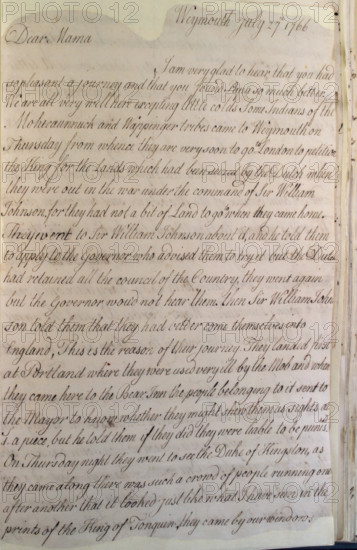 Weymouth July 27th 1766
Dear Mama
I am very glad to hear that you had
so pleasant a journey and that you found Papa so much better.
We are all very well here excepting little colds. Some Indians of the
Mohecaunnuck and Wappinger tribes came to Weymouth on
Thursday from whence they are very soon to go to London to petition
the King for the Lands which had been by the Dutch when
they were out in the war under the command of Sir William
Johnson for they had not a bit of Land to go to when they came home.
They went to Sir William Johnson about it, and he told them
to apply to the Governor who advised them to try it but the Dutch
had retained all the council of the Country, they went again
but the Governor would not hear them. Then Sir William John-
son told them that they had better come themselves into
England, This is the reason of their journey. They landed first
at Portland where they were used very ill by the Mob and when
they came here to the Bear Inn the people belonging to it sent to
the Mayor to know whether they might shew them as sights at
a piece, but he told them if they did they were liable to be punis.
On Thursday night they went to see the Duke of Kingston, as
they came along there was such a crowd of people running one
after another that it looked just like what I have since in the
prints of the King of Tonquin they came by our windows